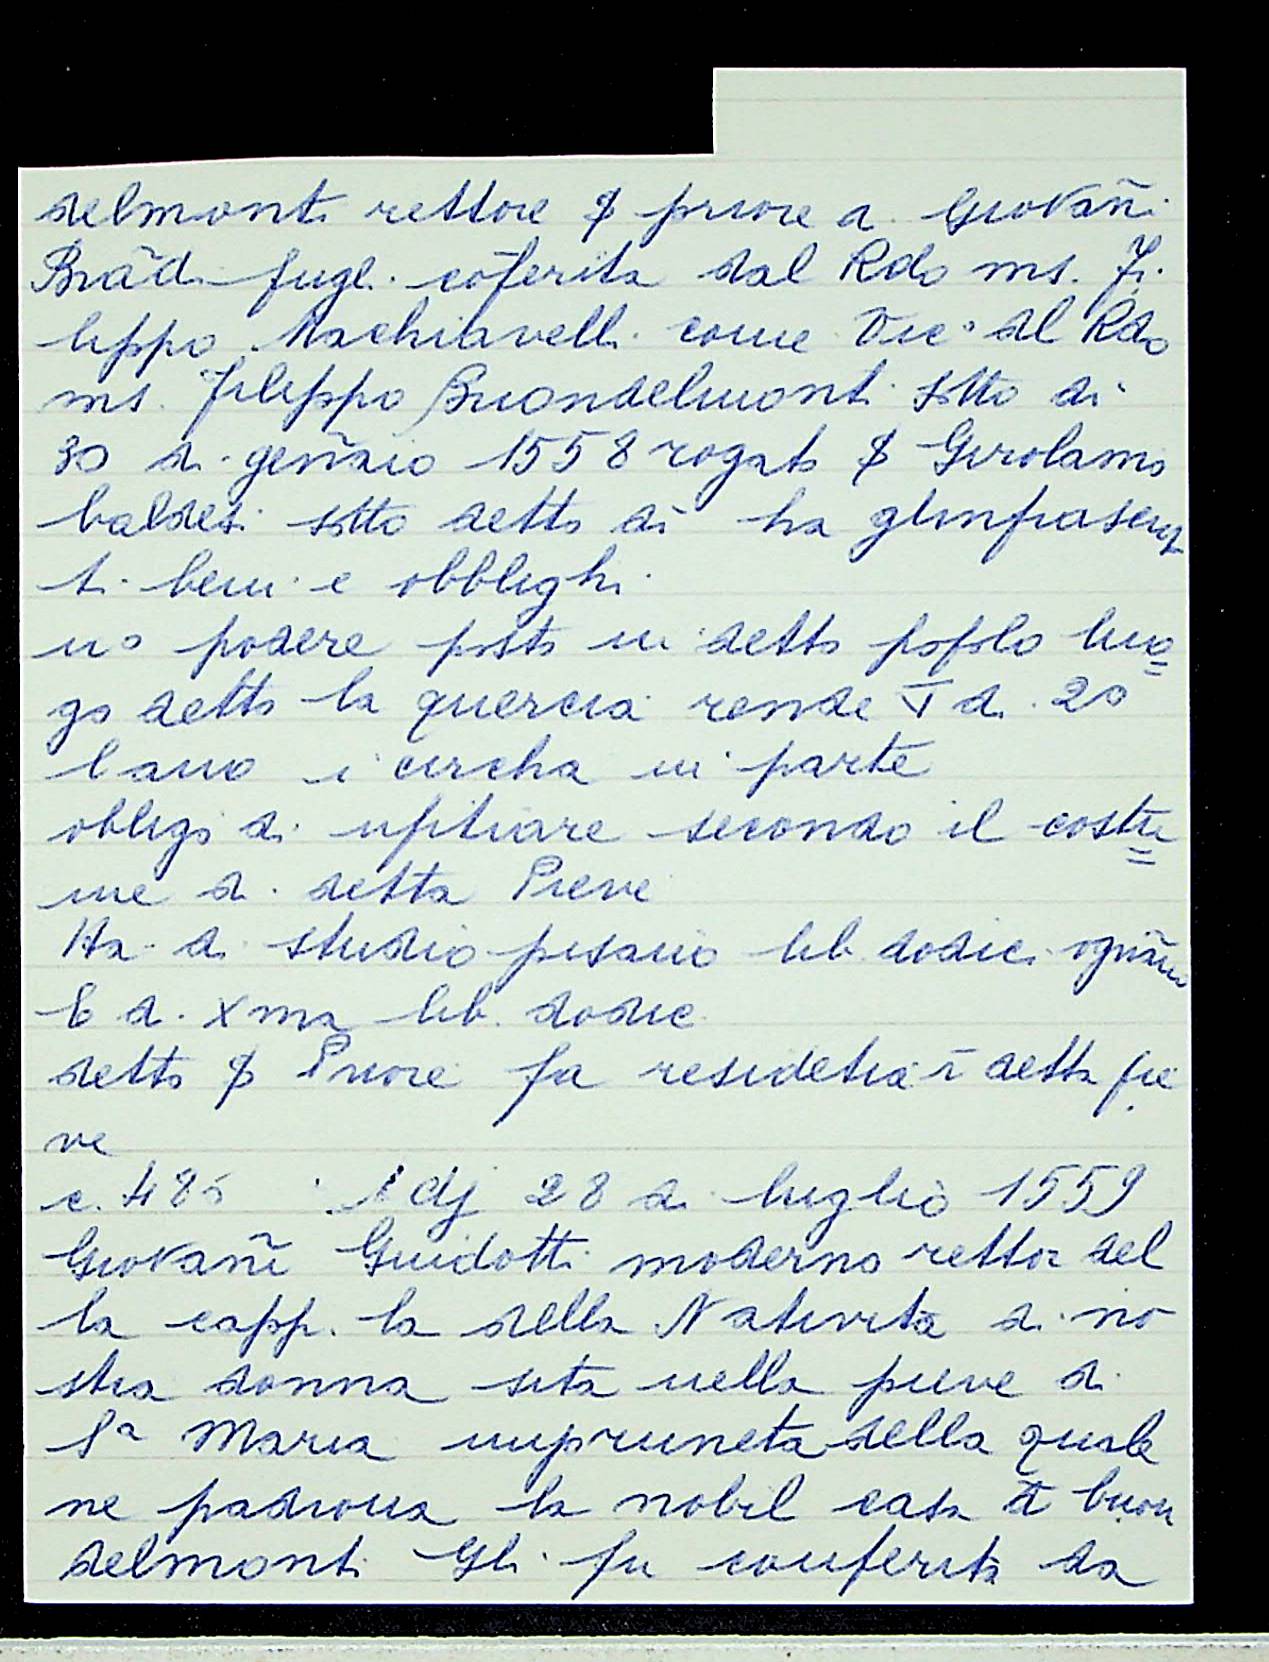 delmonti rettore ꝑ priore a. Giovan̄i
Brād. fugl. cōferita dal Rdo ms. Fi
lippo Machiavelli come Vic° del Rdo
ms. Filippo Buondelmonti sotto di
30 di gen̄aio 1558 rogato ꝑ Girolamo
baldesi sotto detto di ha glinfrascrip
ti beni e obblighi
uº podere posto in detto popolo luo=
go detto la quercia rende ∇ di 20
lano i circha in parte
obligo di ufitiare secondo il costu=
me di detta Pieve
Ha di studio pisano lib dodici ogn̄ano
E di Xma lib. dodic
detto ꝑ Priore fa residetia ī detta pie
ve
c. 486 Adj 28 di luglio 1559
Giovan̄i Guidotti moderno rettor del
la capp.la della Natività di no
stra donna sita nella pieve di
Sª Maria impruneta della quale
ne padrona la nobil casa d̄ buon
delmonti Gli fu conferita da